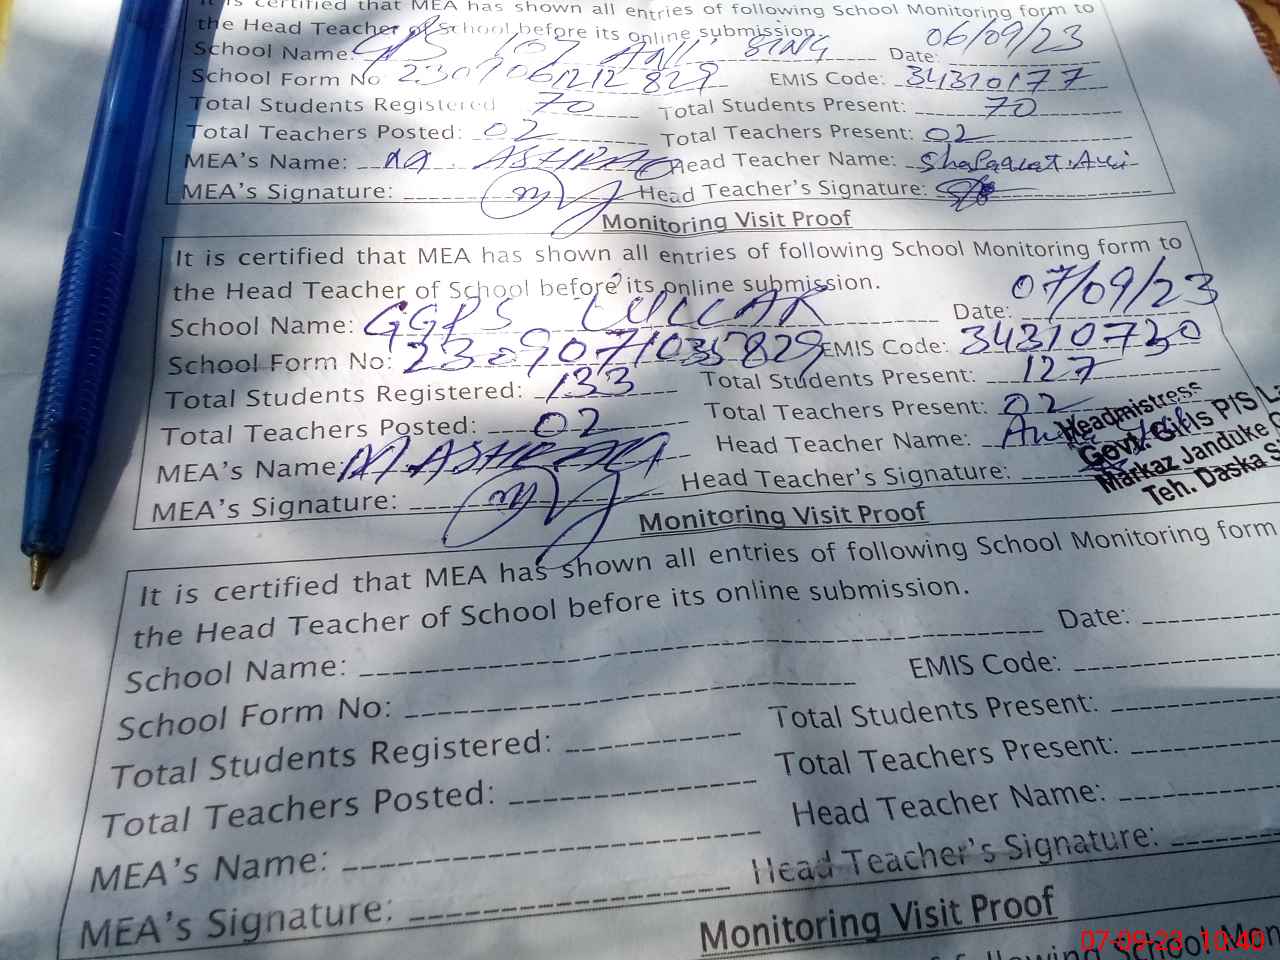 It is certified that MEA has shown all entries of following School Monitoring form to
the Head Teacher of School before its online submission.
School Name: GPS 107 Date: 06/09/23
School Form No 2309061212829 EMIS Code: 34310177
Total Students Registered 70 Total Students Present: 70
Total Teachers Posted: 02 Total Teachers Present: 02
MEA's Name: M. ASHRAF Head Teacher Name: Shafaquat Ali
MEA's Signature: Head Teacher's Signature:
Monitoring Visit Proof
It is certified that MEA has shown all entries of following School Monitoring form to
the Head Teacher of School before its online submission.
School Name: GGPS LULLAR Date: 07/09/23
School Form No: 2309071035829 EMIS Code: 34310730
Total Students Registered: 133 Total Students Present: 127
Total Teachers Posted: 02 Total Teachers Present: 02
MEA's Name: M ASHRAF Head Teacher Name:
MEA's Signature: Head Teacher's Signature:
Headmistress
Govt. Girls P/S
Markaz Janduke
Teh. Daska
Monitoring Visit Proof
It is certified that MEA has shown all entries of following School Monitoring form
the Head Teacher of School before its online submission.
School Name: Date:
School Form No: EMIS Code:
Total Students Registered: Total Students Present:
Total Teachers Posted: Total Teachers Present:
MEA's Name: Head Teacher Name:
MEA's Signature: Head Teacher's Signature:
Monitoring Visit Proof
following School Mon
07-09-23 10:40